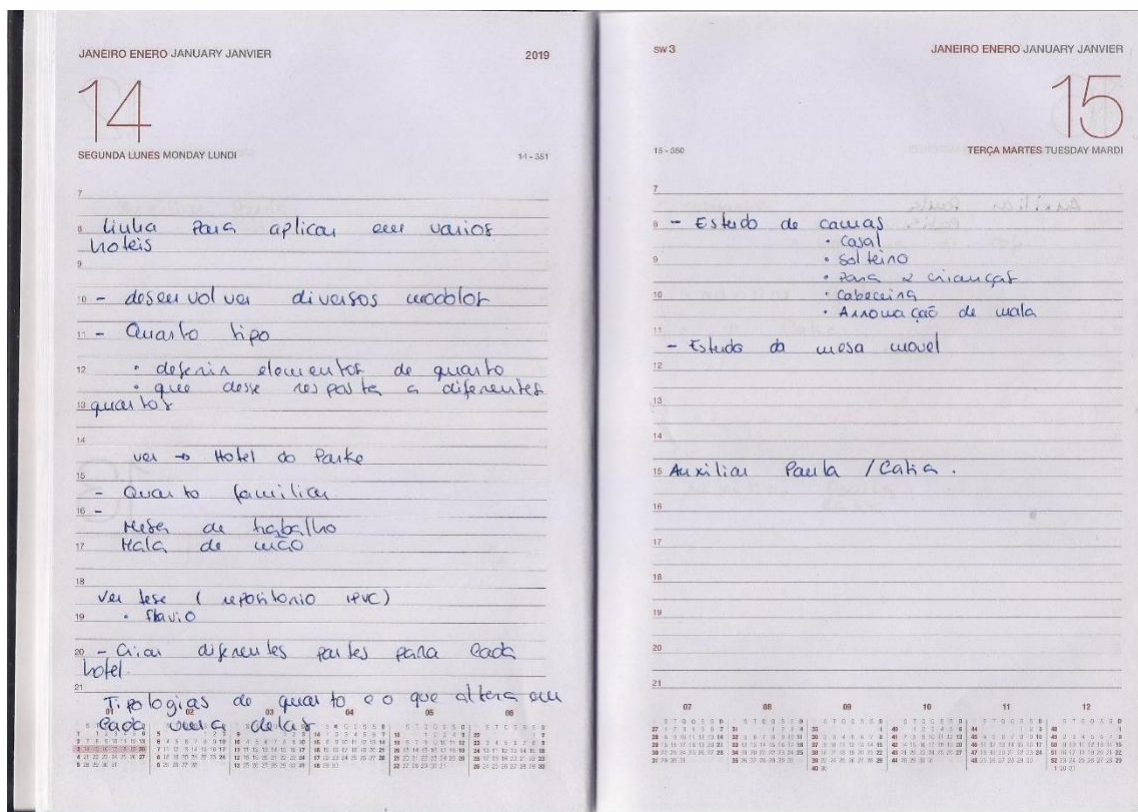 JANEIRO ENERO JANUARY JANVIER 2019
14
SEGUNDA LUNES MONDAY LUNDI 14 - 351
7
8 linha para aplicar em varios
hoteis
9
10 - desenvolver diversos modelos
11 - Quarto tipo
12 • definir elementos de quarto
• que desse resposta a diferentes
13 quartos
14
ver → Hotel do Parke
15
- Quarto familiar
16 -
Mesa de trabalho
17 Mala de mão
18
Ver tese ( repositorio IPVC)
19 • flavio
20 - Criar diferentes partes para cada
hotel.
21
Tipologias de quarto e o que altera em
cada uma delas
01 02 03 04 05 06
SW 3 JANEIRO ENERO JANUARY JANVIER
15
15 - 350 TERÇA MARTES TUESDAY MARDI
7
8 - Estudo de camas
• Casal
9 • Solteiro
• Para 2 crianças
10 • Cabeceira
• Arrumação de mala
11
- Estudo da mesa movel
12
13
14
15 Auxiliar Paula / Catia.
16
17
18
19
20
21
07 08 09 10 11 12